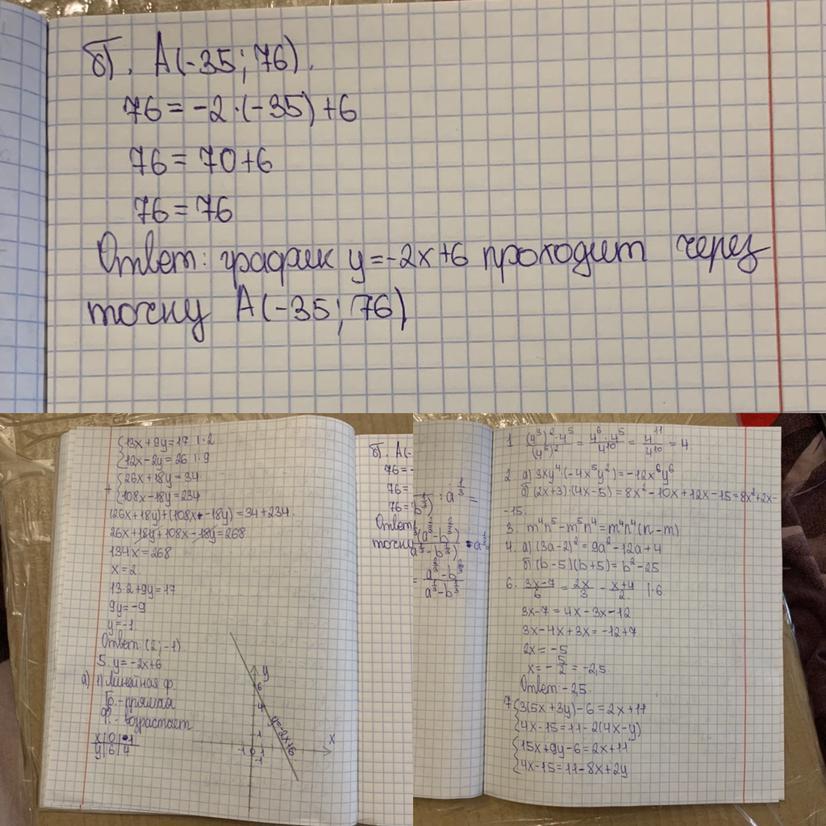 б). А(-35; 76).
76 = -2·(-35)+6
76 = 70+6
76 = 76
Ответ: график y=-2x+6 проходит через
точку А(-35; 76)
{13x+9y=17 |·2
{12x-2y=26 |·9
+ {26x+18y=34
{108x-18y=234
(26x+18y)+(108x-18y)=34+234
26x+18y+108x-18y=268
134x=268
x=2
13·2+9y=17
9y=-9
y=-1
Ответ (2;-1)
5. y=-2x+6
а) 1) Линейная ф.
Гр.-прямая
Ф.-возрастает
x|0|1
y|6|4
y
6
4
y=-2x+6
x
-1 0 1
-1
б). А(-
76=-
76=
76=
Ответ
точку
1. (4³)²·4⁵/(4⁵)² = 4⁶·4⁵/4¹⁰ = 4¹¹/4¹⁰ = 4
2. а) 3xy⁴(-4x⁵y²)=-12x⁶y⁶
б) (2x+3)·(4x-5)=8x²-10x+12x-15=8x²+2x-
-15.
3. m⁴n⁵-m⁵n⁴=m⁴n⁴(n-m)
4. а) (3a-2)²=9a²-12a+4
б) (b-5)(b+5)=b²-25
6. 3x-7/6 = 2x/3 - x+4/2 |·6
3x-7=4x-3x-12
3x-4x+3x=-12+7
2x=-5
x=-5/2=-2,5
Ответ:-2,5
7. {3(5x+3y)-6=2x+11
{4x-15=11-2(4x-y)
{15x+9y-6=2x+11
{4x-15=11-8x+2y